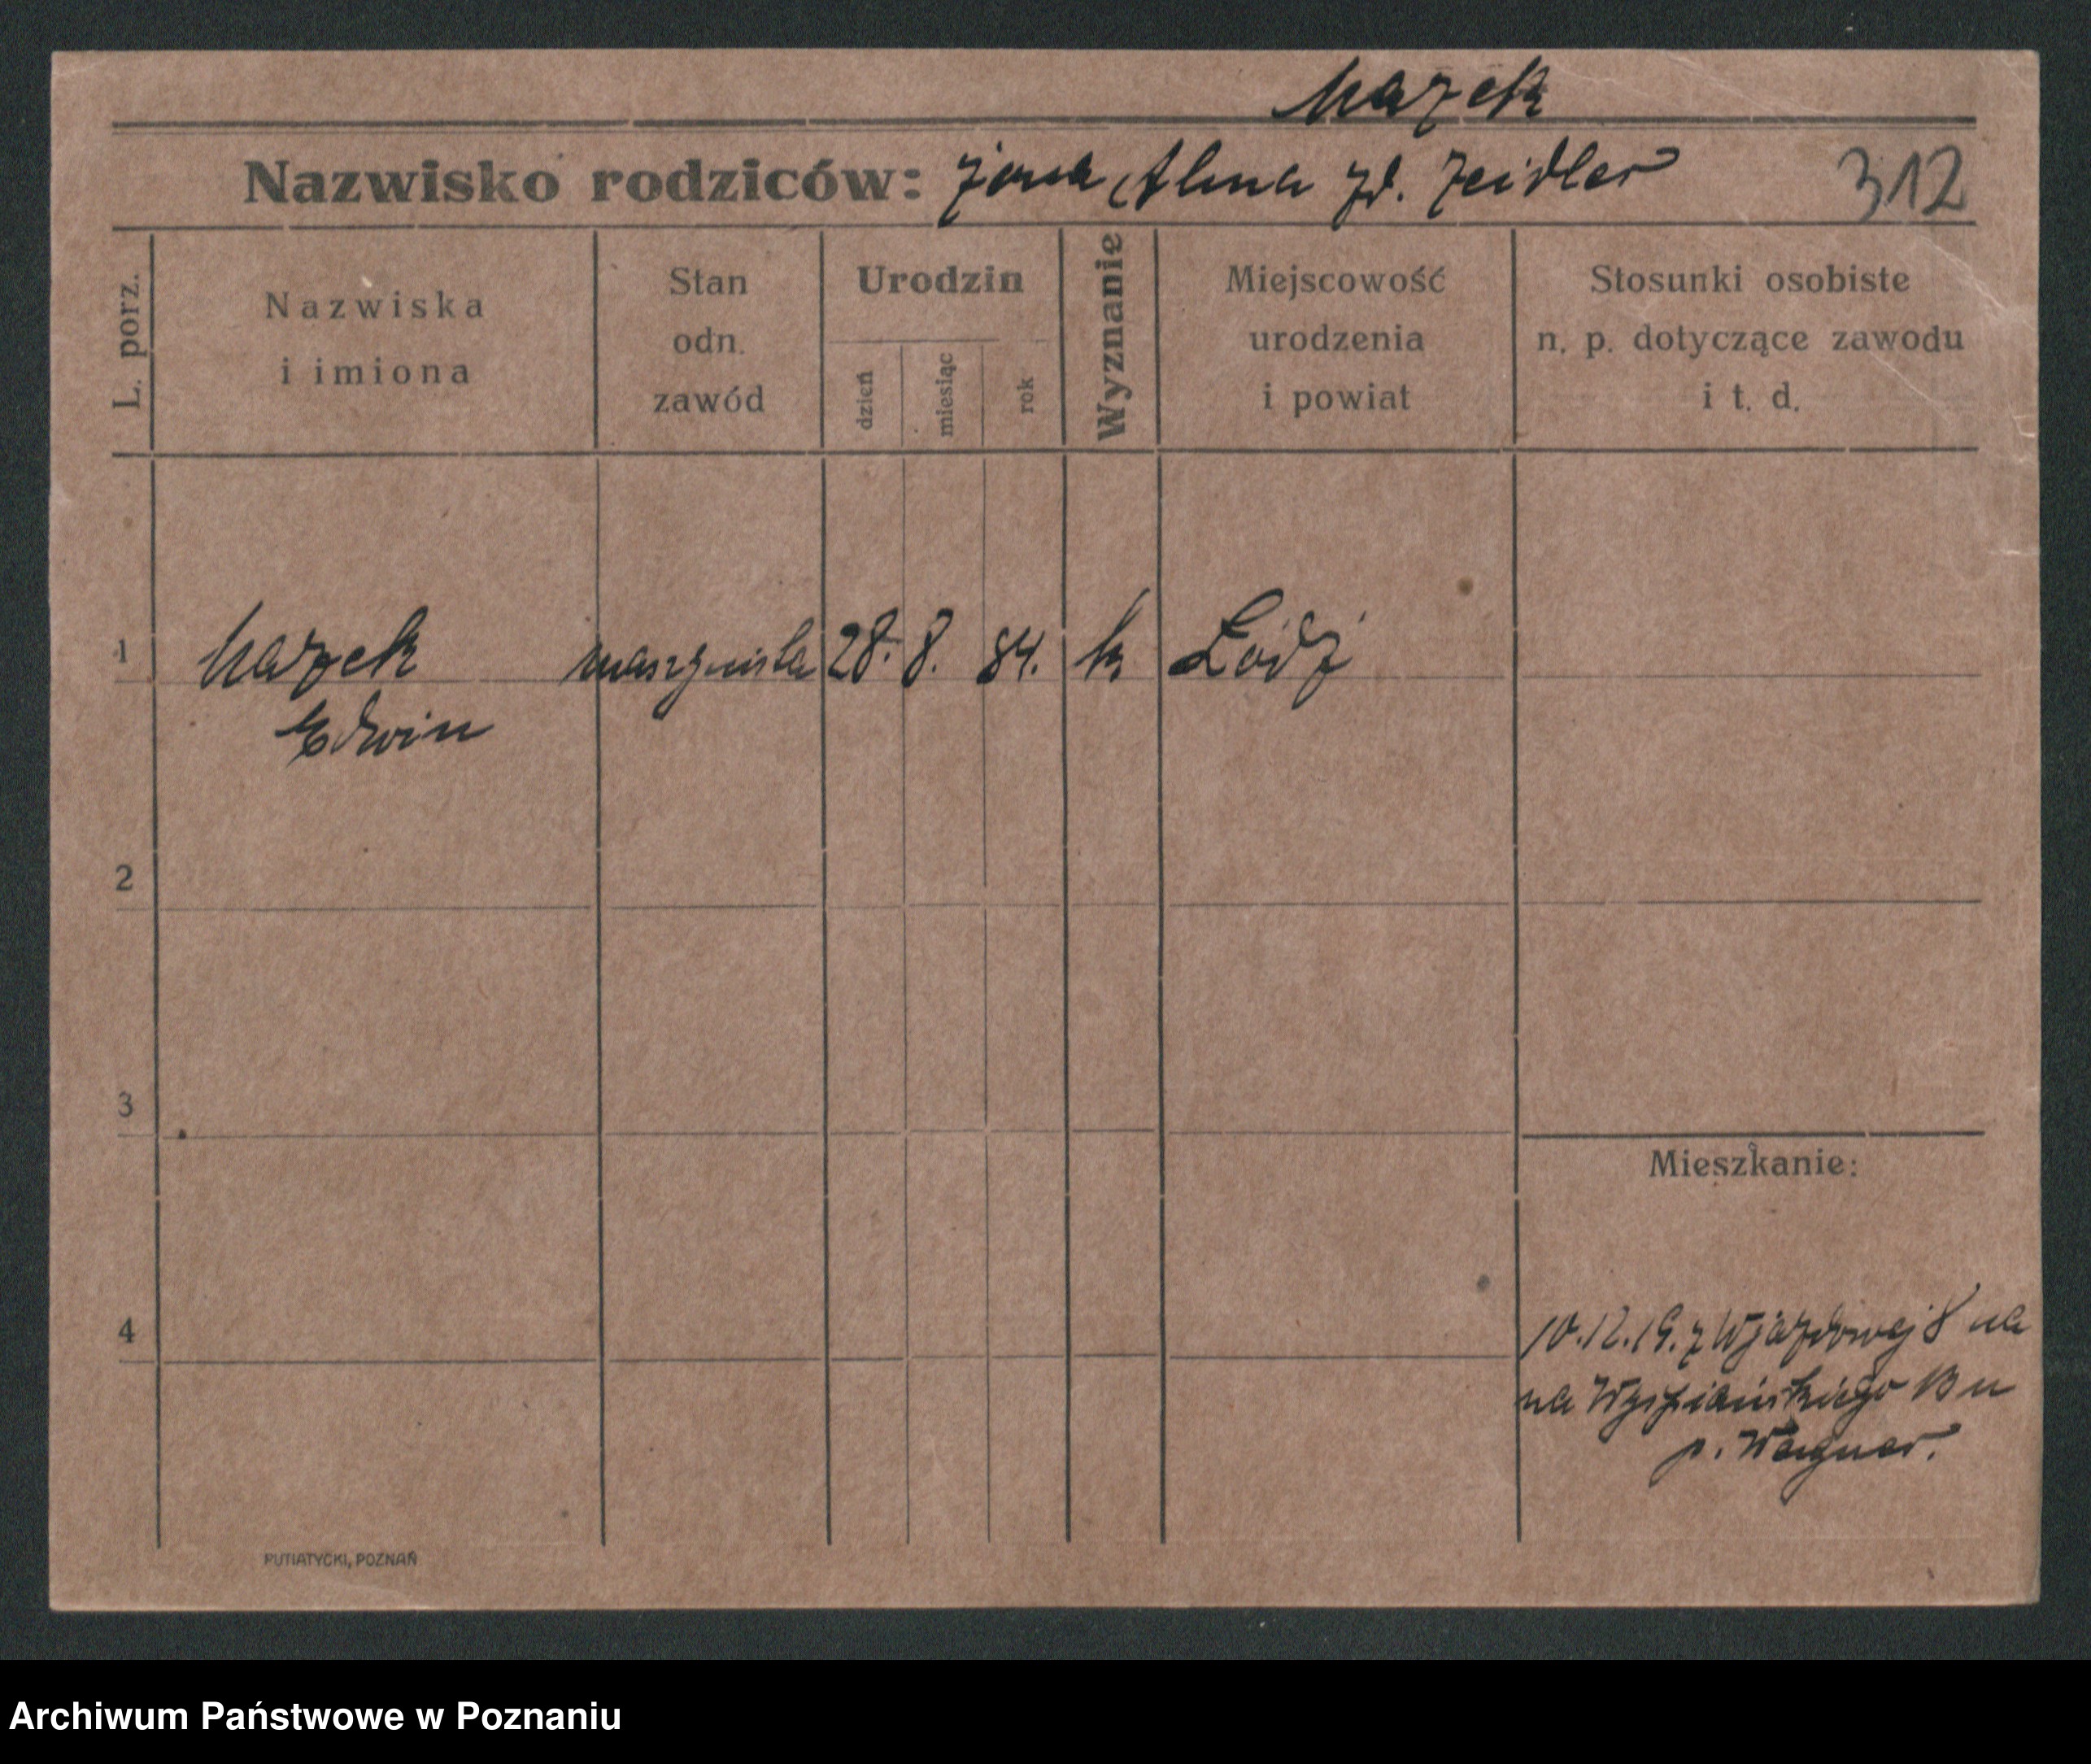 Mazek
Nazwisko rodziców: żona Alma zd. Zeidler 312
L. porz.
Nazwiska
i imiona
Stan
odn.
zawód
Urodzin
dzień
miesiąc
rok
Wyznanie
Miejscowość
urodzenia
i powiat
Stosunki osobiste
n. p. dotyczące zawodu
i t. d.
1 Mazek maszynista 28. 8. 84. k Łódź
Edwin
2
3
Mieszkanie:
4
10.12.19. z Wjazdowej 8 na
na Wyspiańskiego 13 u
p. Wagner.
PUTIATYCKI, POZNAŃ
Archiwum Państwowe w Poznaniu